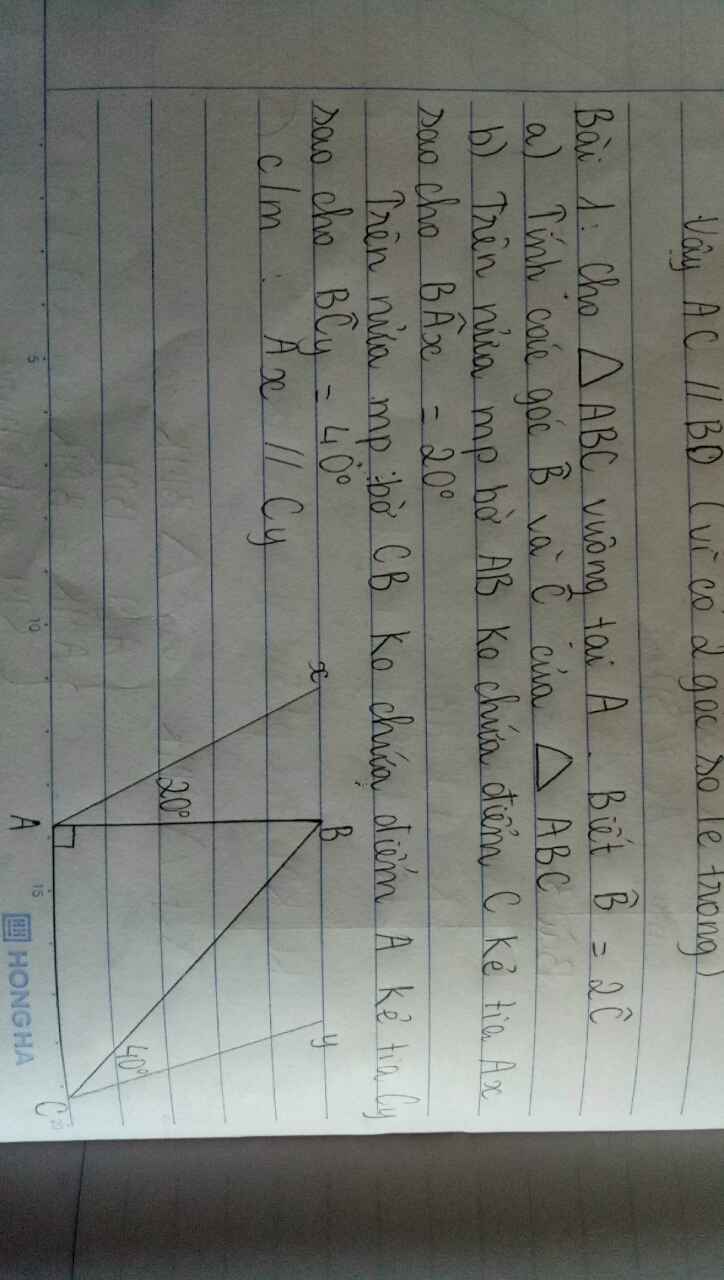 Vậy AC // BD (vì có 2 góc so le trong)
Bài 1: Cho △ ABC vuông tại A. Biết B̂ = 2Ĉ
a) Tính các góc B̂ và Ĉ của △ ABC
b) Trên nửa mp bờ AB ko chứa điểm C kẻ tia Ax
sao cho BÂx = 20°
Trên nửa mp bờ CB ko chứa điểm A kẻ tia Cy
sao cho BĈy = 40°
c/m : Ax // Cy
x
B
y
20°
40°
A
C
5
10
15
20
HH HONG HA